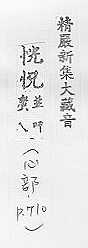 精嚴新集大藏音
恍怳並呼廣乀(心部p.710)